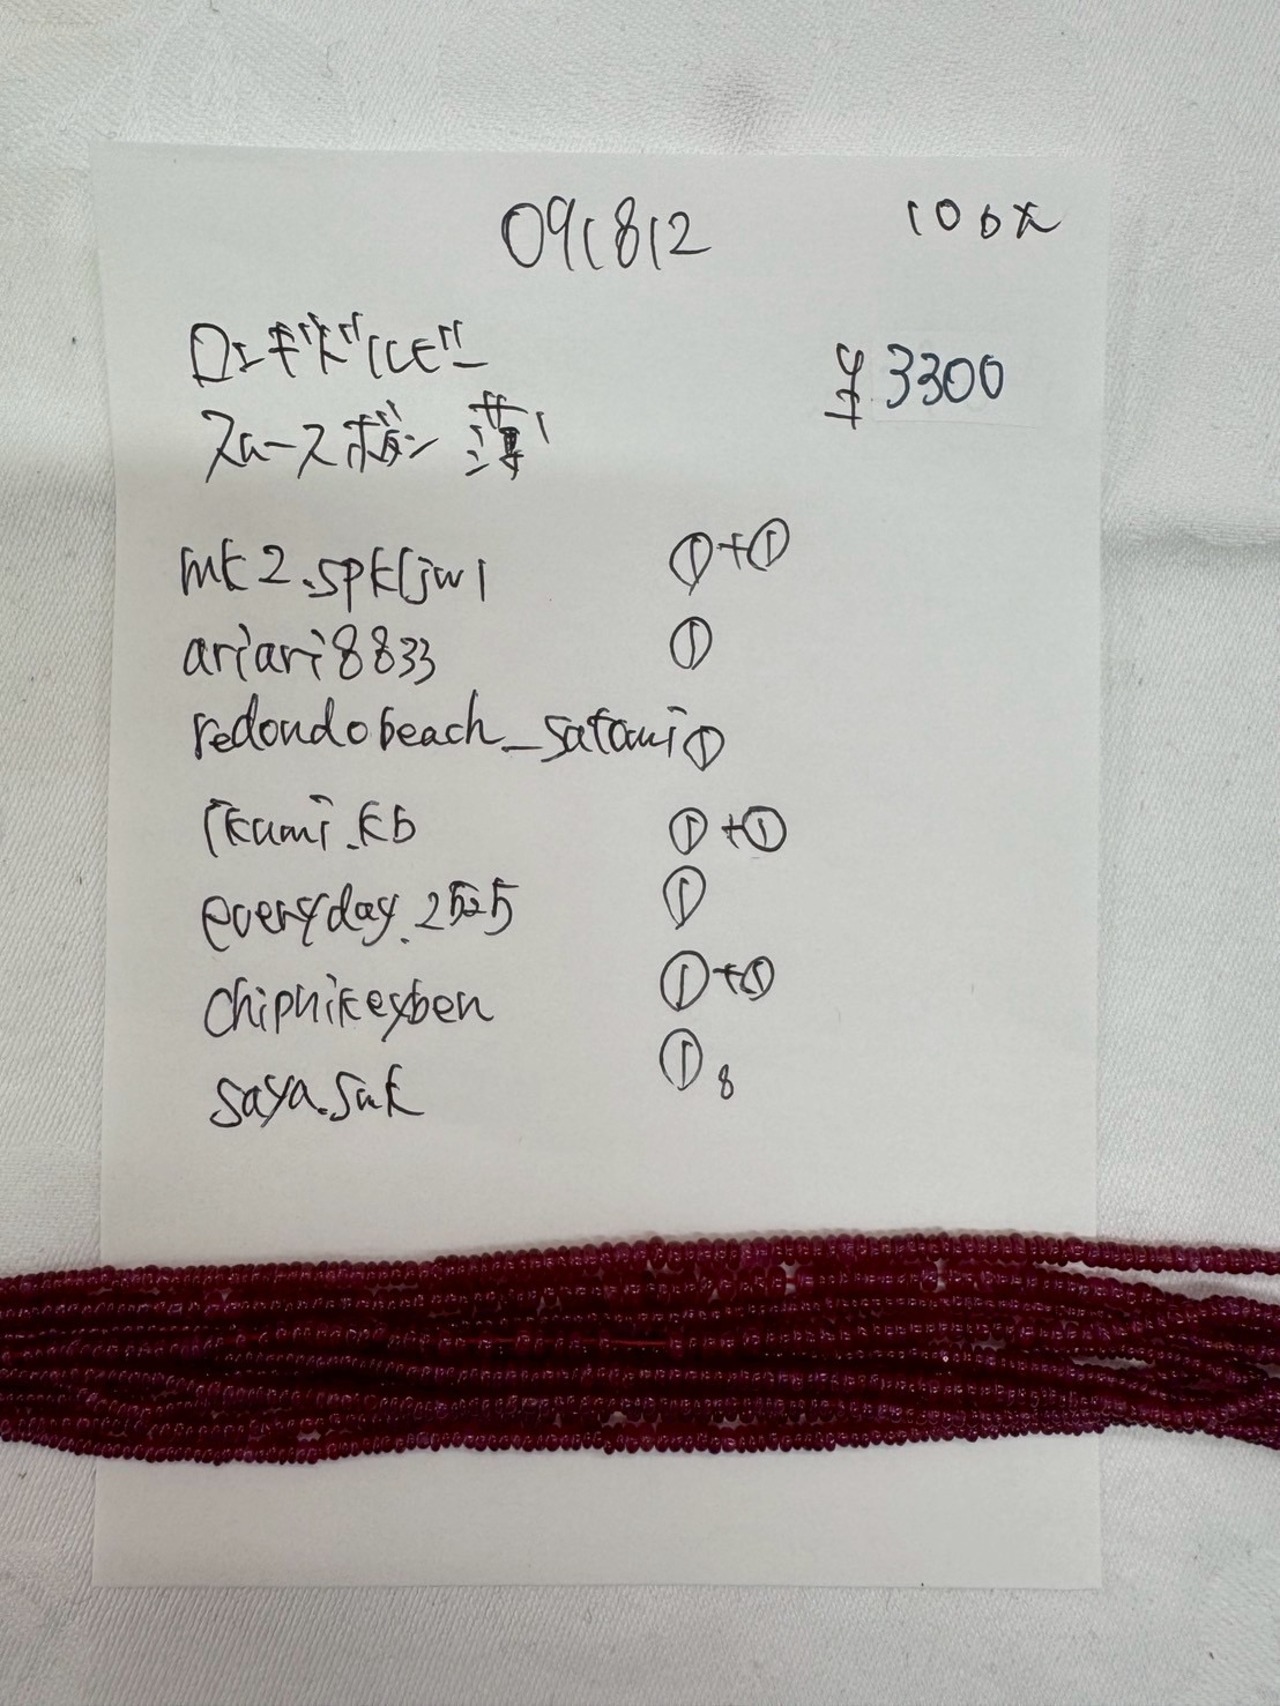 091812 10本
ロンギドルビー
スムースボタン 薄
¥3300
mk2.spkljw1 ①+①
ariari8833 ①
redondobeach_satomi ①
ikumi.kb ①+①
everyday.2525 ①
chipnikeyben ①+①
saya.suk ① 8